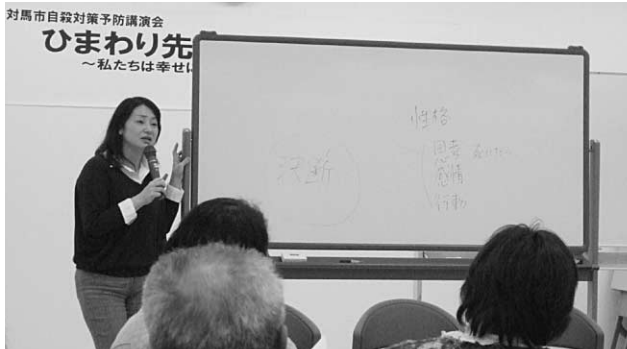 対馬市自殺対策予防講演会
ひまわり先
～私たちは幸せに
性格
思考
感情
行動
決断